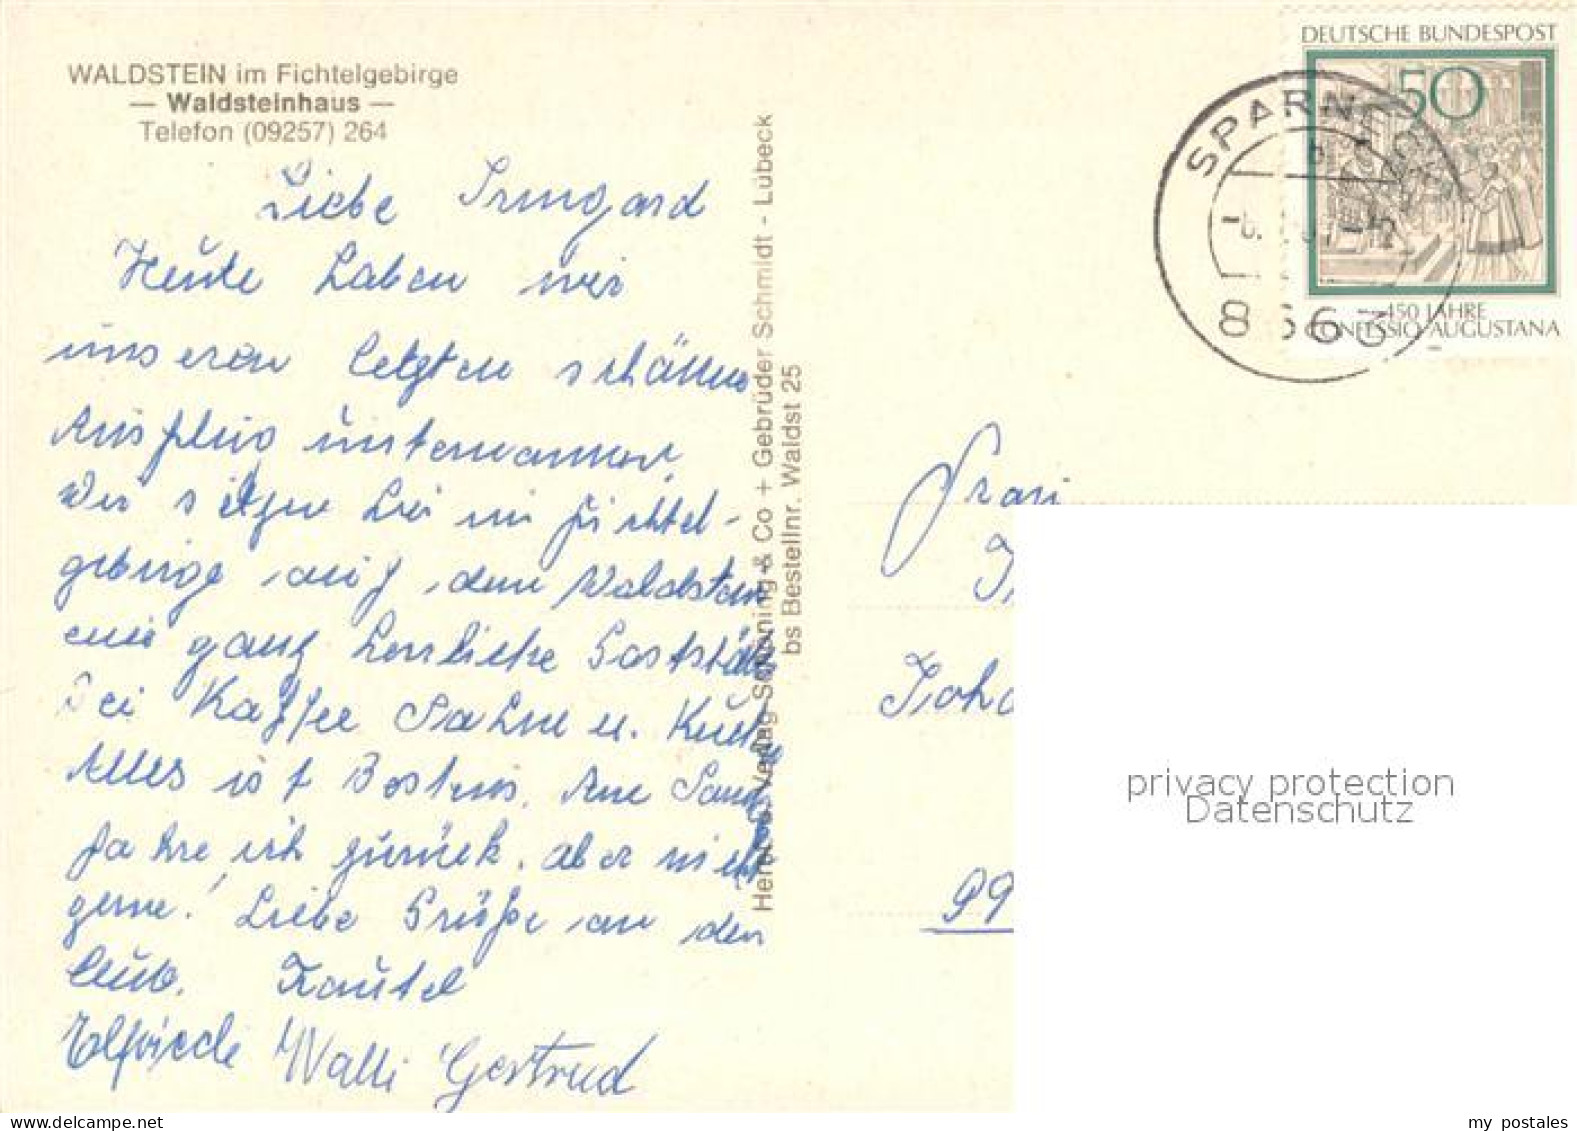 WALDSTEIN im Fichtelgebirge
— Waldsteinhaus —
Telefon (09257) 264
Liebe Irmgard
Heute haben wir
unseren letzten schönen
Ausflug unternommen,
Wir sitzen hier im Fichtel-
gebirge auf dem Waldstein
eine ganz herrliche Gaststätte
bei Kaffee Sahne u. Kuchen
Alles ist Bestens. Am
fahre ich zurück, aber nicht
gerne! Liebe Grüße an den
Club.
Elfriede Walli Gertrud
Verlag Schöning & Co + Gebrüder Schmidt - Lübeck
bs Bestellnr. Waldst 25
DEUTSCHE BUNDESPOST
50
450 JAHRE
CONFESSIO AUGUSTANA
SPARNECK
b
8663
Frau
99
privacy protection
Datenschutz
my postales